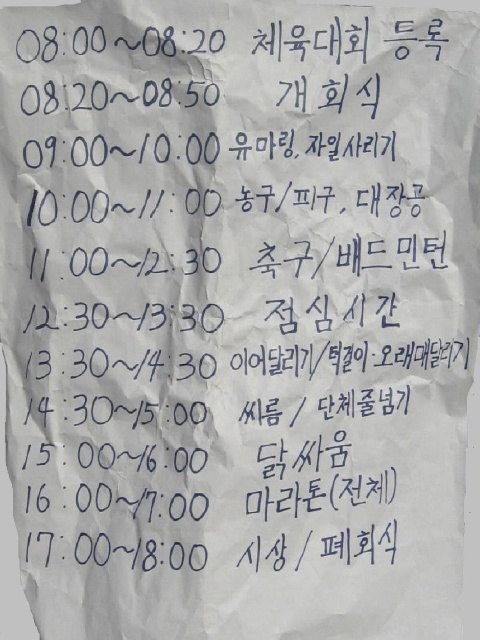 08:00~08:20 체육대회 등록
08:20~08:50 개회식
09:00~10:00 유마링, 자일사리기
10:00~11:00 농구/피구, 대장공
11:00~12:30 축구/배드민턴
12:30~13:30 점심시간
13:30~14:30 이어달리기/턱걸이·오래매달리기
14:30~15:00 씨름/단체줄넘기
15:00~16:00 닭싸움
16:00~17:00 마라톤(전체)
17:00~18:00 시상/폐회식